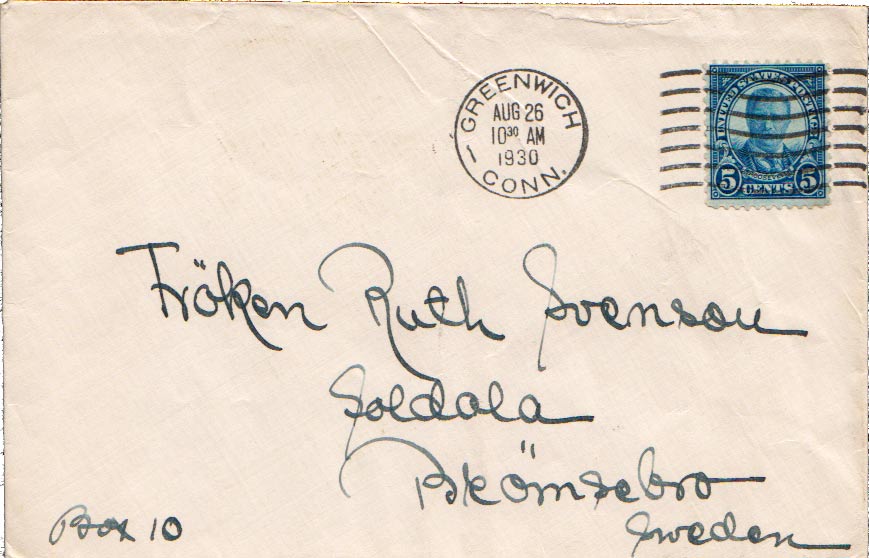 GREENWICH
AUG 26
10³⁰ AM
1930
CONN.
1
UNITED STATES POSTAGE
ROOSEVELT
5 CENTS 5
Fröken Ruth Svenson
Soldala
Brömsebro
Sweden
Box 10